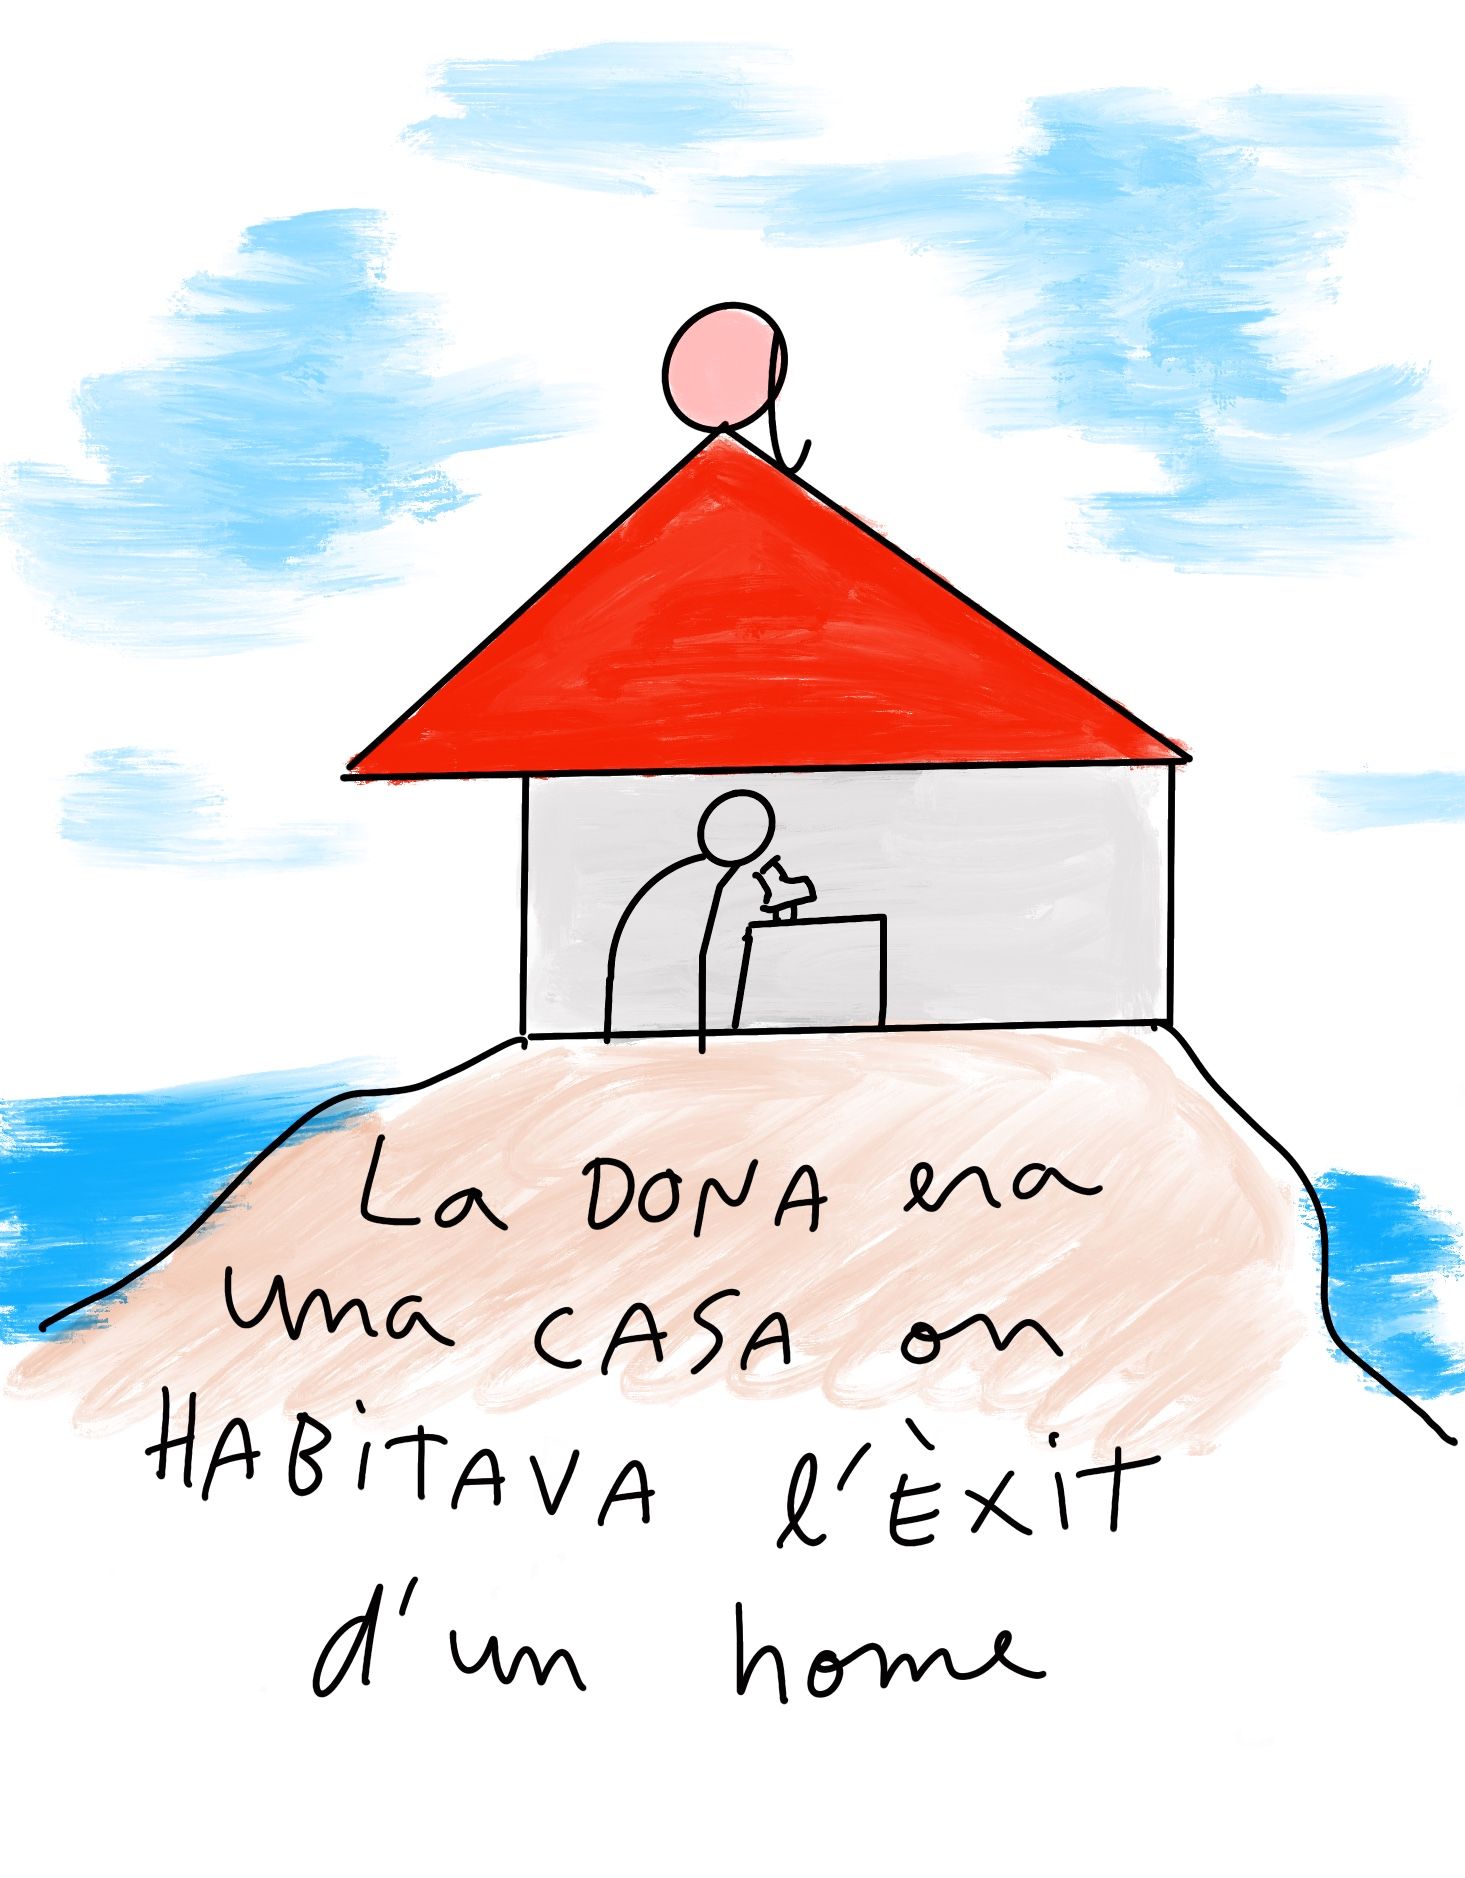 La DONA era
una CASA on
HABiTAVA l'ÈXiT
d'un home